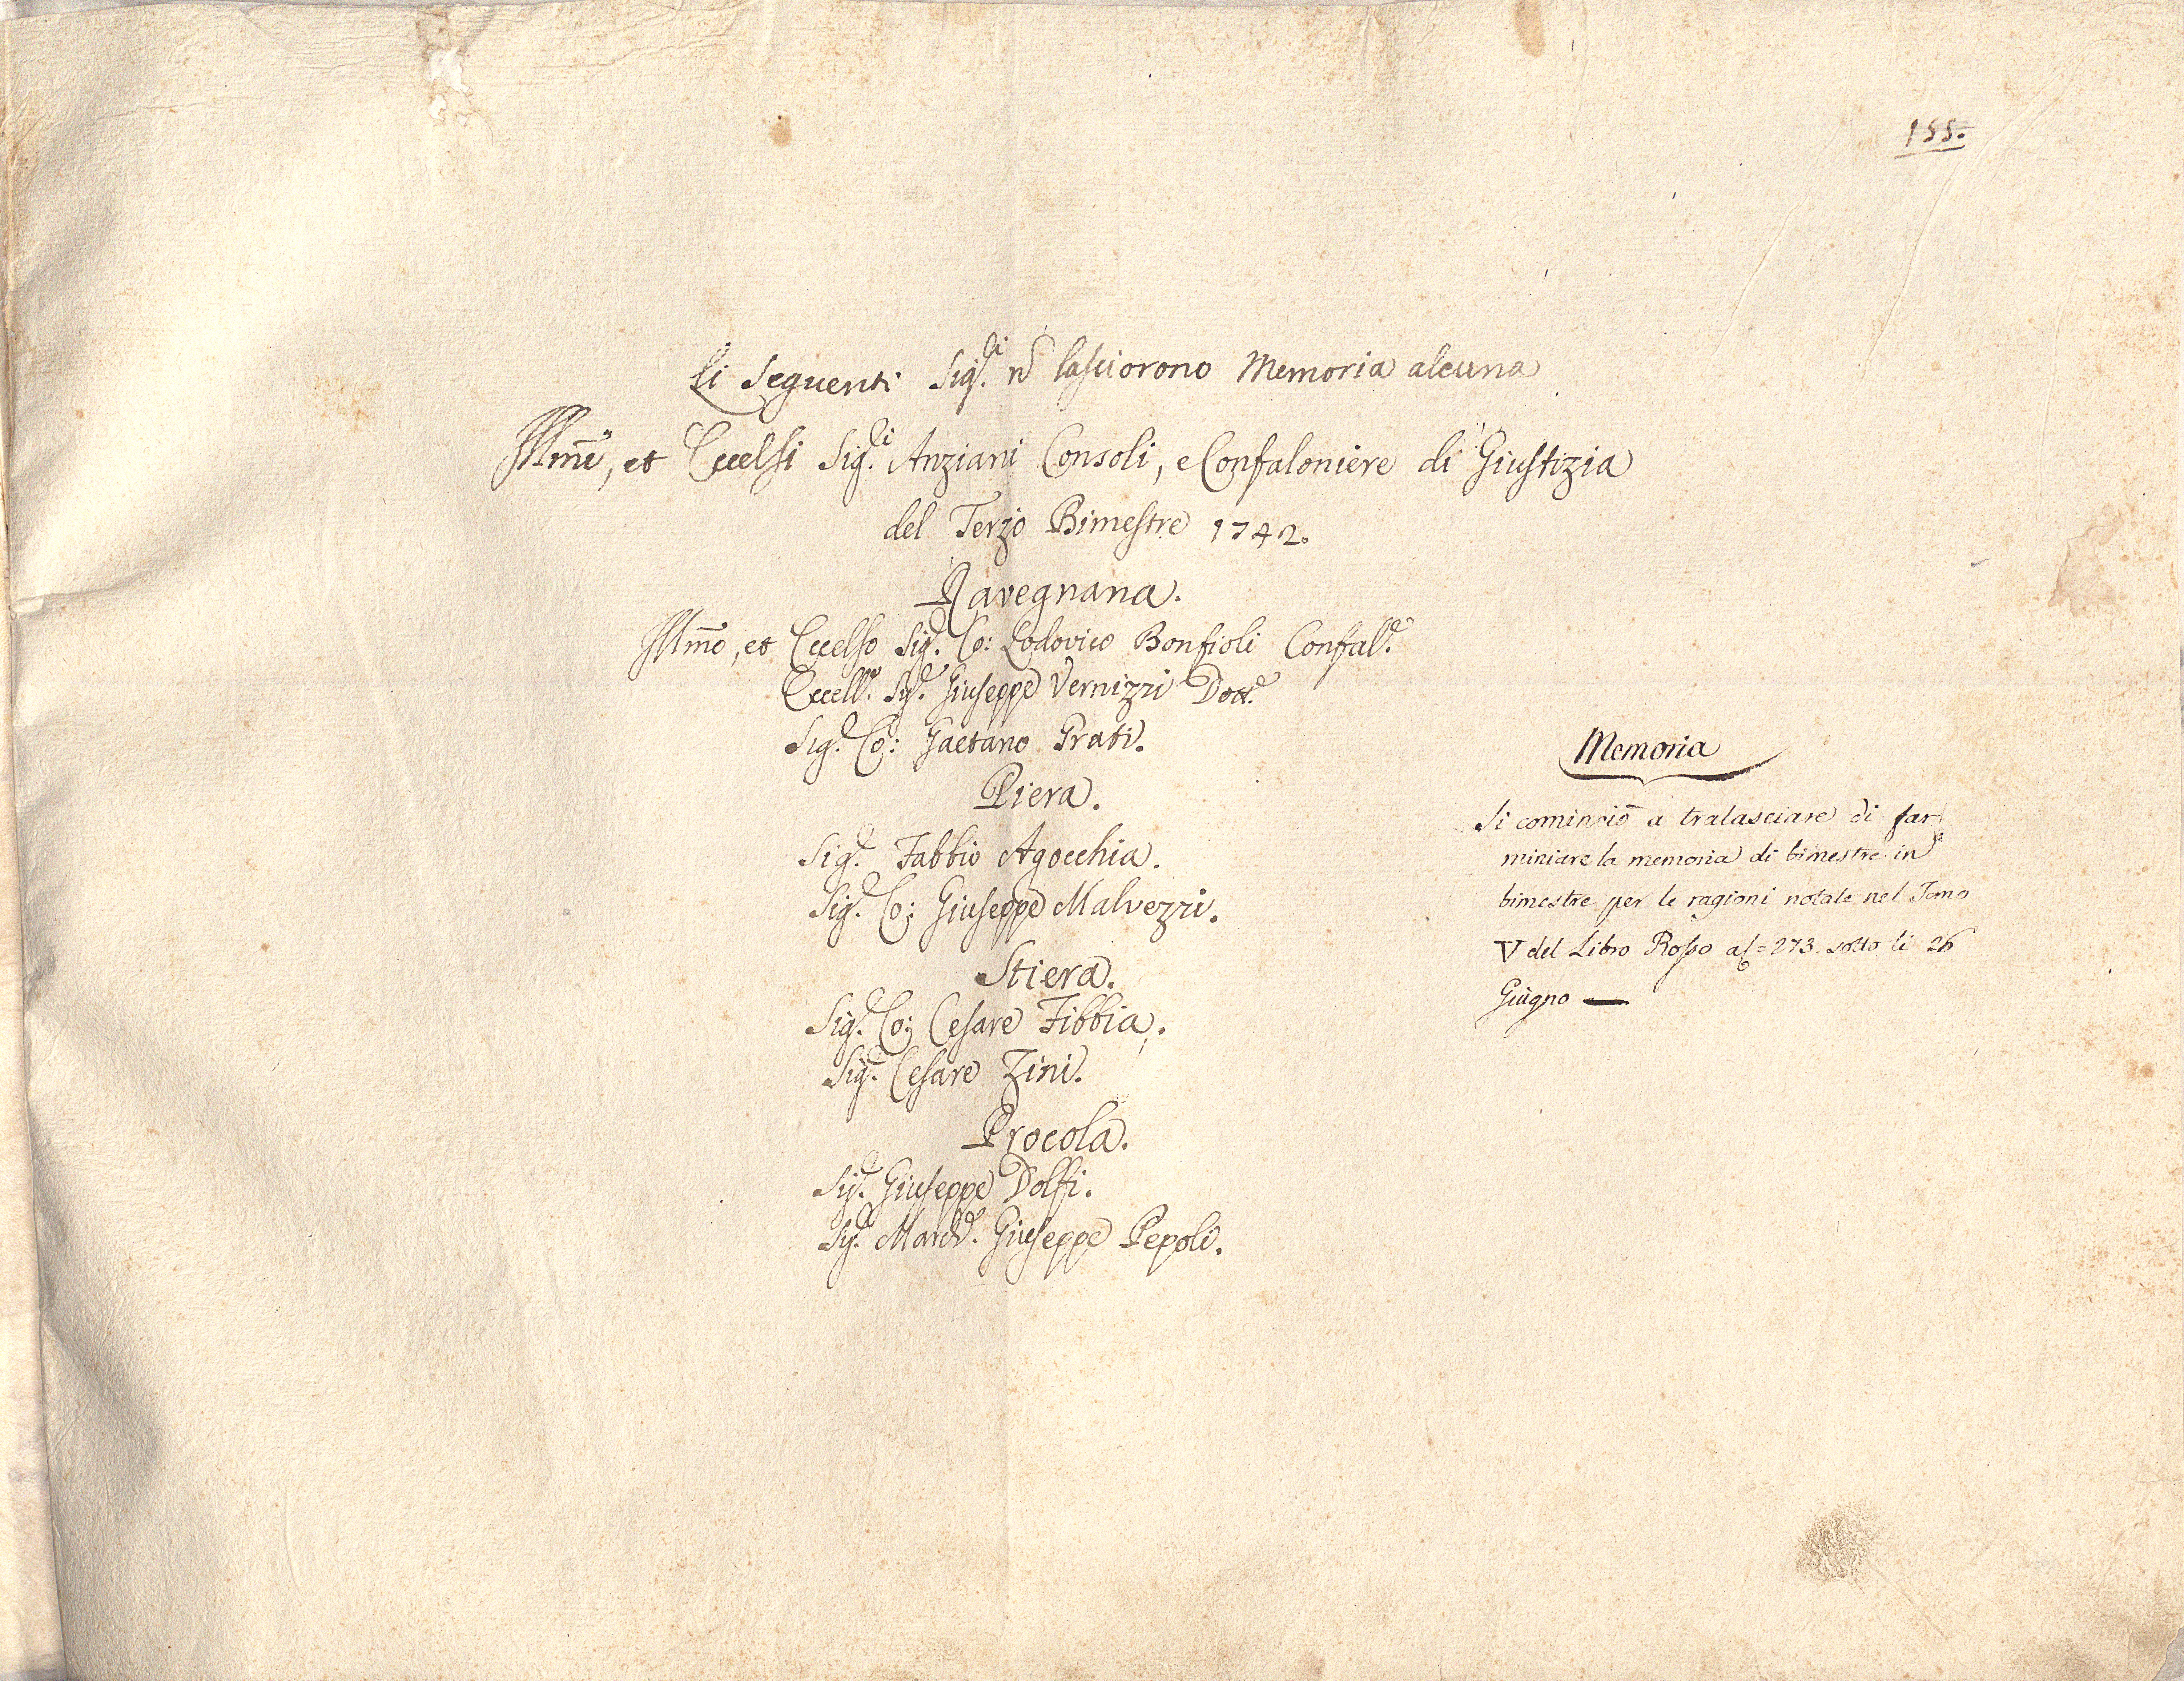 155.
Li Seguenti Sig.ri nõ lasciorono Memoria alcuna
Illmĩ, et Eccelsi Sig.ri Anziani Consoli, e Confaloniere di Giustizia
del Terzo Bimestre 1742.
Ravegnana.
Illmõ, et Eccelso Sig.e Co: Lodovico Bonfioli Confal.e
Eccell.mo Sig.e Giuseppe Vernizzi Dott.e
Sig.e Co: Gaetano Grati.
Piera.
Sig.e Fabbio Agocchia.
Sig.e Co: Giuseppe Malvezzi.
Stiera.
Sig.e Co: Cesare Fibbia.
Sig.e Cesare Zini.
Procola.
Sig.e Giuseppe Dolfi.
Sig.e March.e Giuseppe Pepoli.
Memoria
Si cominciò a tralasciare di far
miniare la memoria di bimestre in
bimestre per le ragioni notate nel Tomo
V del Libro Rosso a f = 273. sotto li 26
Giugno —